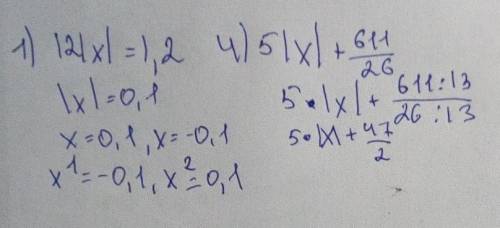 1) 12|x| = 1,2
|x| = 0,1
x = 0,1, x = -0,1
x¹ = -0,1, x² = 0,1
4) 5|x| + 611/26
5 · |x| + 611:13/26:13
5 · |x| + 47/2